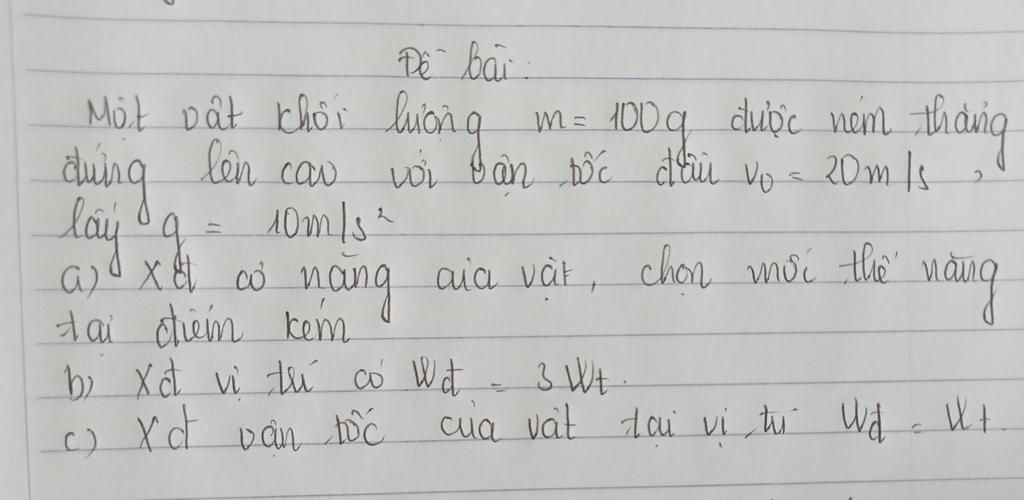 Đề bài:
Một vật khối lượng m = 100g được ném thẳng
đứng lên cao với vận tốc đầu v₀ = 20m/s,
lấy g = 10m/s²
a) Xđ cơ năng của vật, chọn mốc thế năng
tại điểm kém
b) Xđ vị trí có Wđ = 3Wt.
c) Xđ vận tốc của vật tại vị trí Wđ = Wt.